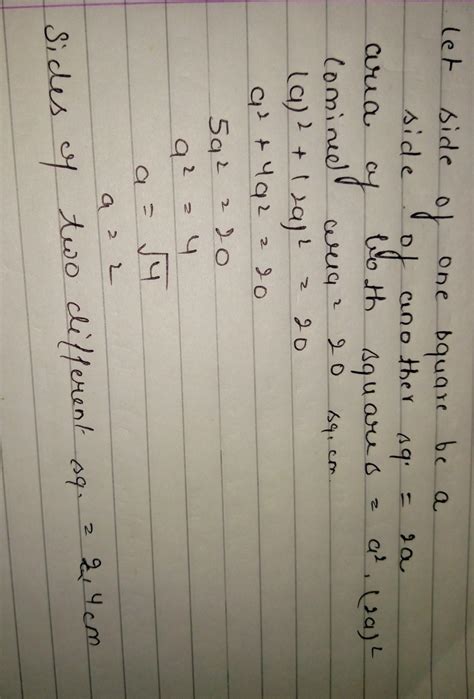 let side of one square be a
side of another sq. = 2a
area of both squares = a², (2a)²
Comined area = 20 sq. cm
(a)² + (2a)² = 20
a² + 4a² = 20
5a² = 20
a² = 4
a = √4
a = 2
Sides of two different sq. = 2,4cm